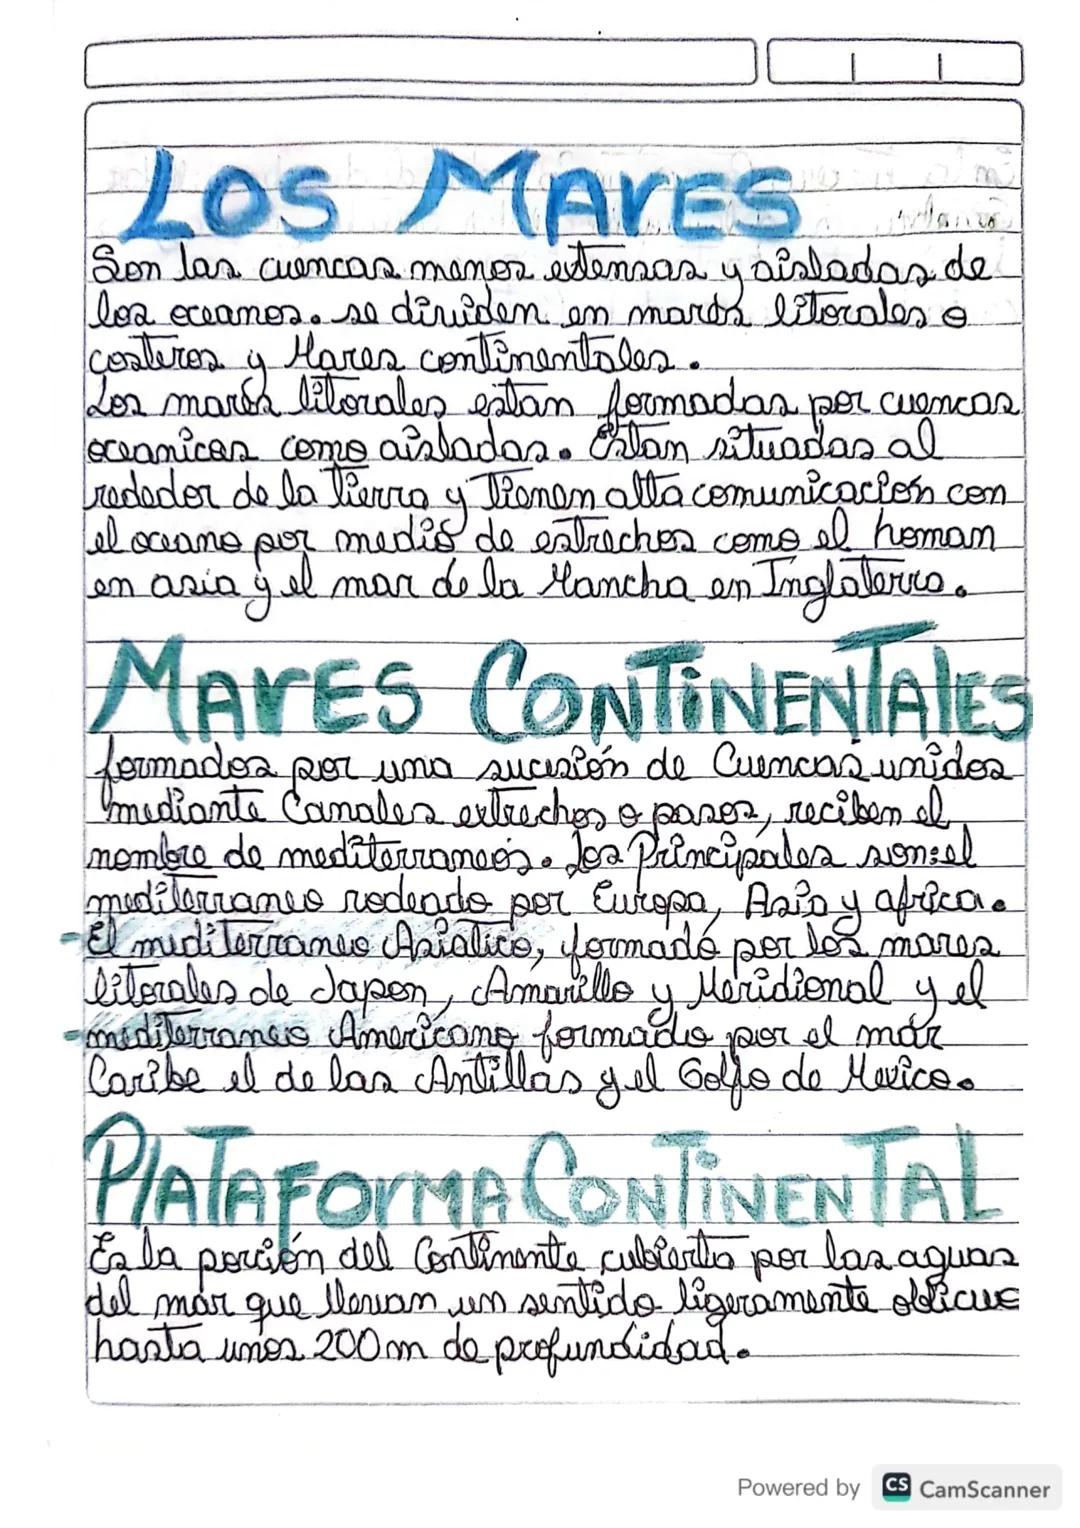 Los Mares
Son las cuencas menos extensas y aisladas de
los oceanos. se dividen en mares litorales o
costeros y Mares continentales.
Los mares litorales estan formadas por cuencas
oceanicas como aisladas. Estan situadas al
rededor de la tierra y tienen alta comunicación con
el oceano por medio de estrechos como el homan
en asia y el mar de la Mancha en Inglaterra.
Mares Continentales
formados por una sucesión de Cuencas unidos
mediante Canales estrechos o pasos, reciben el
nombre de mediterraneos. Los Principales son: el
mediterraneo rodeado por Europa, Asia y africa.
- El mediterraneo Asiatico, formado por los mares
litorales de Japon, Amarillo y Meridional y el
- mediterraneo Americano formado por el mar
Caribe el de las Antillas y el Golfo de Mexico.
Plataforma Continental
Es la porción del Continente cubierta por las aguas
del mar que llevan un sentido ligeramente oblicuo
hasta unos 200 m de profundidad.
Powered by CS CamScanner